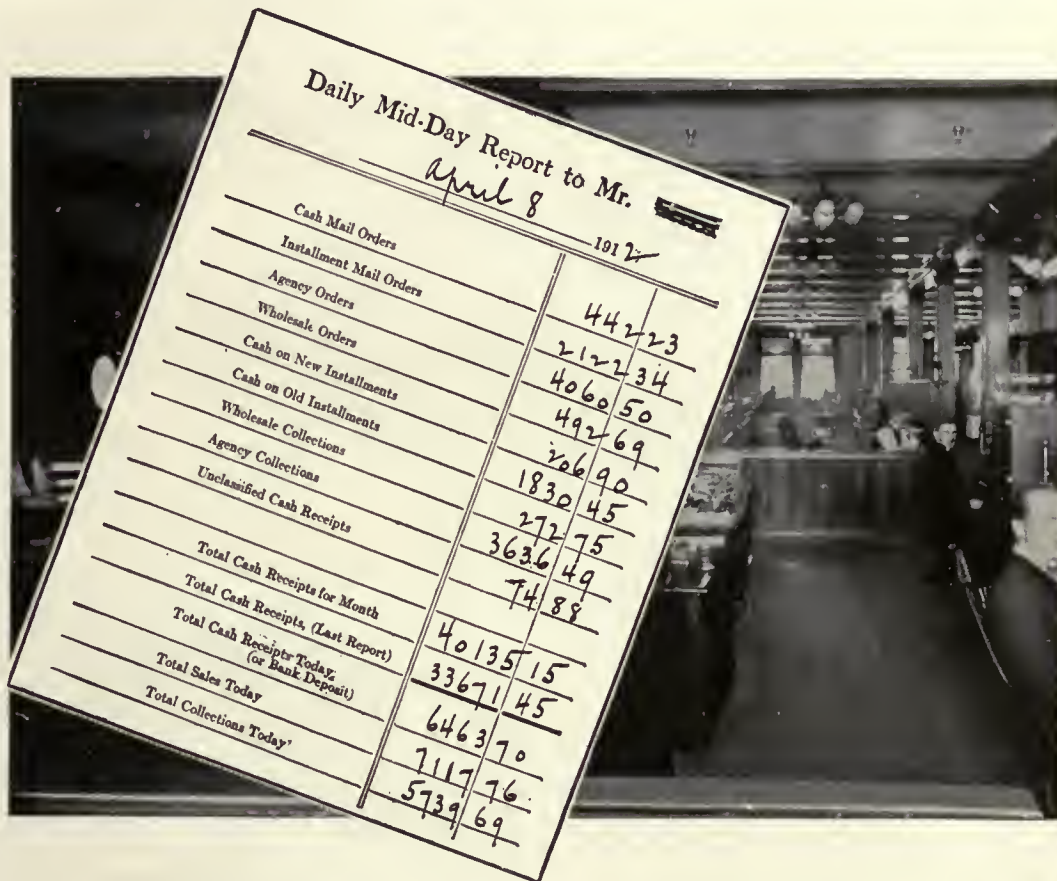 Daily Mid-Day Report to Mr.
April 8 1912
Cash Mail Orders 442 23
Installment Mail Orders 2122 34
Agency Orders 4060 50
Wholesale Orders 492 69
Cash on New Installments 206 90
Cash on Old Installments 1830 45
Wholesale Collections 272 75
Agency Collections 3636 49
Unclassified Cash Receipts 74 88
Total Cash Receipts for Month 40135 15
Total Cash Receipts, (Last Report) 33671 45
Total Cash Receipts Today,
(or Bank Deposit) 6463 70
Total Sales Today 7117 76
Total Collections Today 5739 69